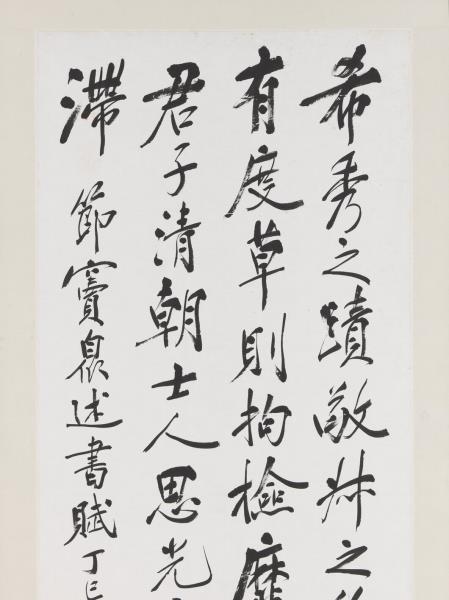 希秀之蹟敬叔之
有度草則拘檢靡
君子清朝士人思光
滯 節竇臮述書賦丁巳